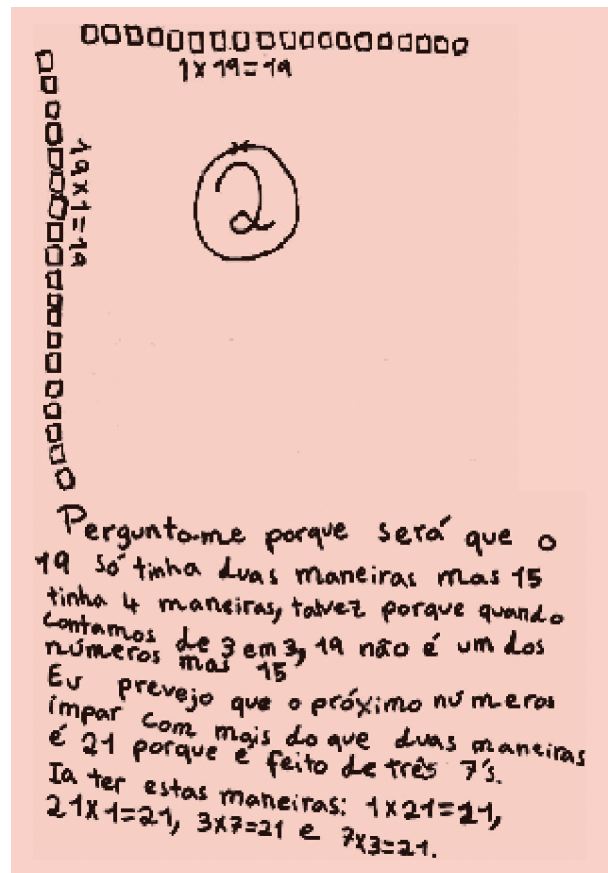 1 x 19 = 19
19 x 1 = 19
2
Pergunto-me porque será que o
19 só tinha duas maneiras mas 15
tinha 4 maneiras, talvez porque quando
contamos de 3 em 3, 19 não é um dos
números mas 15
Eu prevejo que o próximo números
ímpar com mais do que duas maneiras
é 21 porque é feito de três 7's.
Ia ter estas maneiras: 1x21=21,
21x1=21, 3x7=21 e 7x3=21.